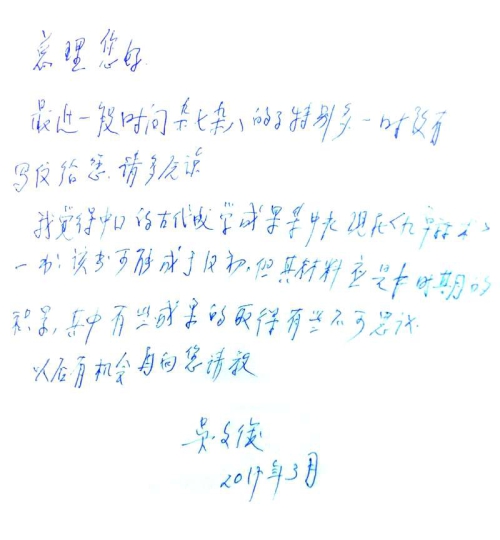 总理您好
最近一段时间杂七杂八的事特别多一时没有
写信给您.请多原谅
我觉得中国的古代数学成果集中表现在《九章算术》
一书:该书可能成于汉初,但其材料应是长时期的
积累,其中有些成果的取得有些不可思议.
以后有机会再向您请教
吴文俊
2017年3月